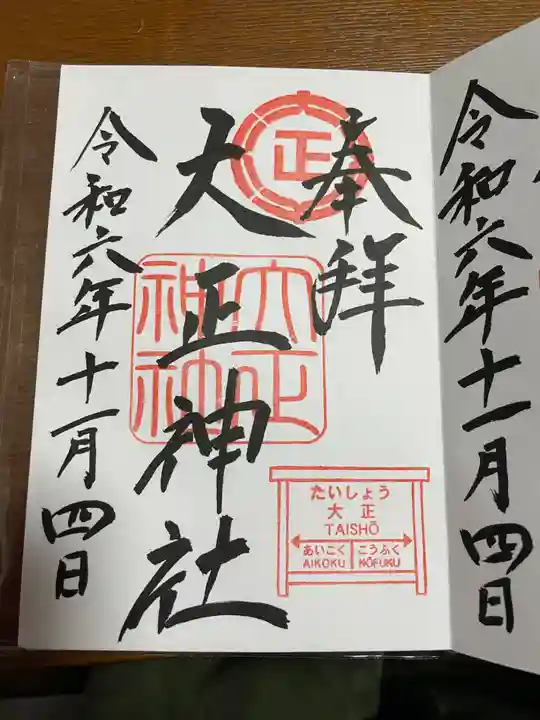 奉拝
大正
大正神社
大正
神社
たいしょう
大正
TAISHŌ
あいこく
こうふく
AIKOKU
KŌFUKU
令和六年十一月四日
令和六年十一月四日